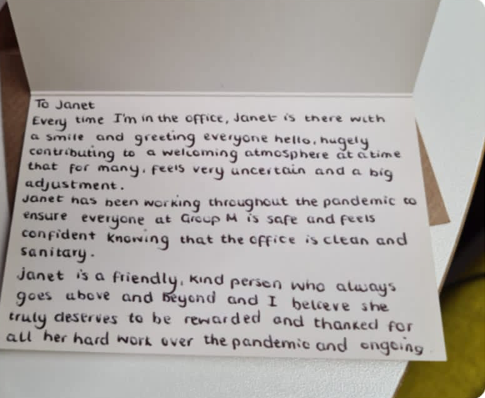 To Janet
Every time I'm in the office, Janet is there with
a smile and greeting everyone hello, hugely
contributing to a welcoming atmosphere at a time
that for many, feels very uncertain and a big
adjustment.
Janet has been working throughout the pandemic to
ensure everyone at Group M is safe and feels
confident knowing that the office is clean and
sanitary.
Janet is a friendly, kind person who always
goes above and beyond and I believe she
truly deserves to be rewarded and thanked for
all her hard work over the pandemic and ongoing